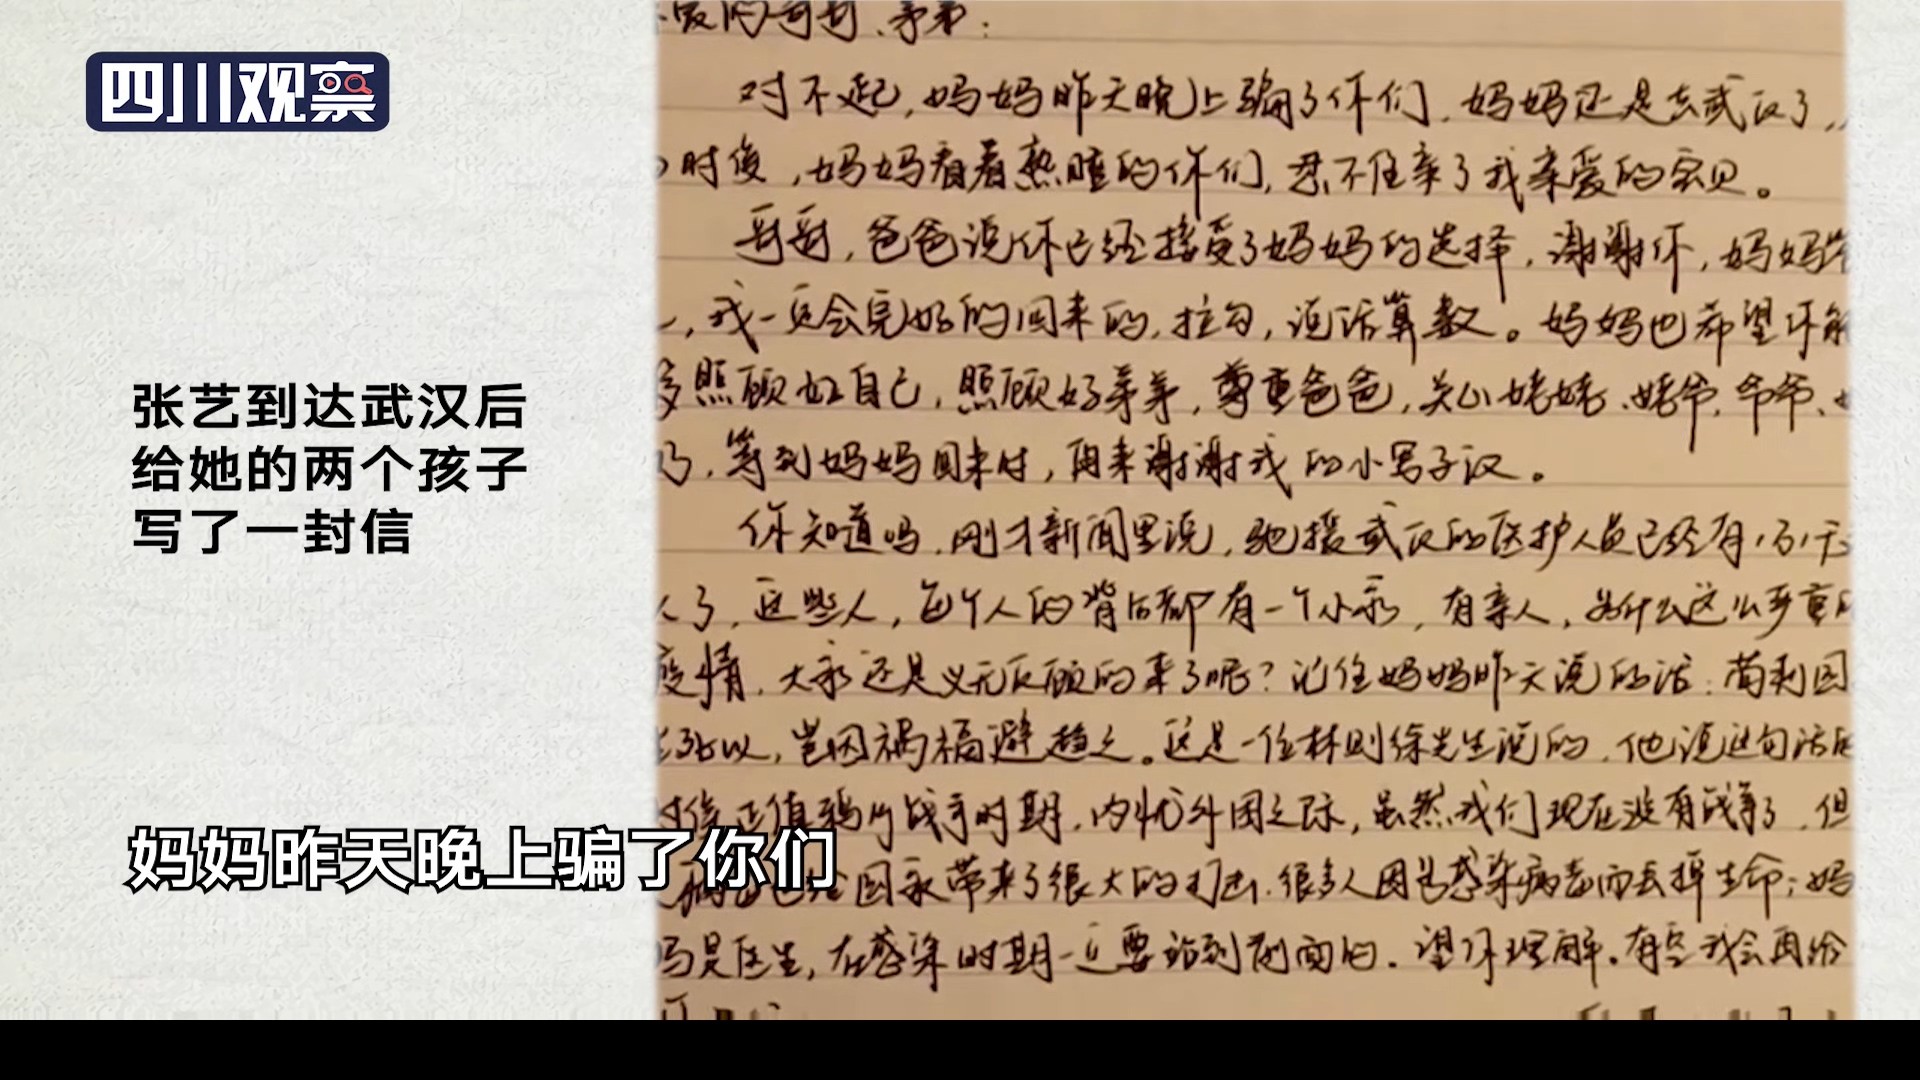 四川观察
张艺到达武汉后
给她的两个孩子
写了一封信
爱的哥哥、弟弟：
对不起，妈妈昨天晚上骗了你们，妈妈还是去武汉了，
时候，妈妈看着熟睡的你们，忍不住亲了我亲爱的宝贝。
哥哥，爸爸说你已经接受了妈妈的选择，谢谢你，妈妈
，我一定会完好的回来的，拉勾，说话算数。妈妈也希望你能
多照顾好自己，照顾好弟弟，尊重爸爸，关心姥姥、姥爷、爷爷、
了，等到妈妈回来时，再来谢谢我的小男子汉。
你知道吗，刚才新闻里说，驰援武汉的医护人员已经有1万1千
人了，这些人，每个人的背后都有一个小家，有亲人，为什么这么严重的
疫情，大家还是义无反顾的来了呢？记住妈妈昨天说的话：苟利国
生死以，岂因祸福避趋之。这是一位林则徐先生说的，他说这句话的
时候正值鸦片战争时期，内忧外困之际，虽然我们现在没有战争了，但
给国家带来了很大的打击，很多人因为感染病毒而丢掉生命；妈
妈是医生，在感染时期一定要站到前面的。望你理解。有空我会再给
妈妈昨天晚上骗了你们